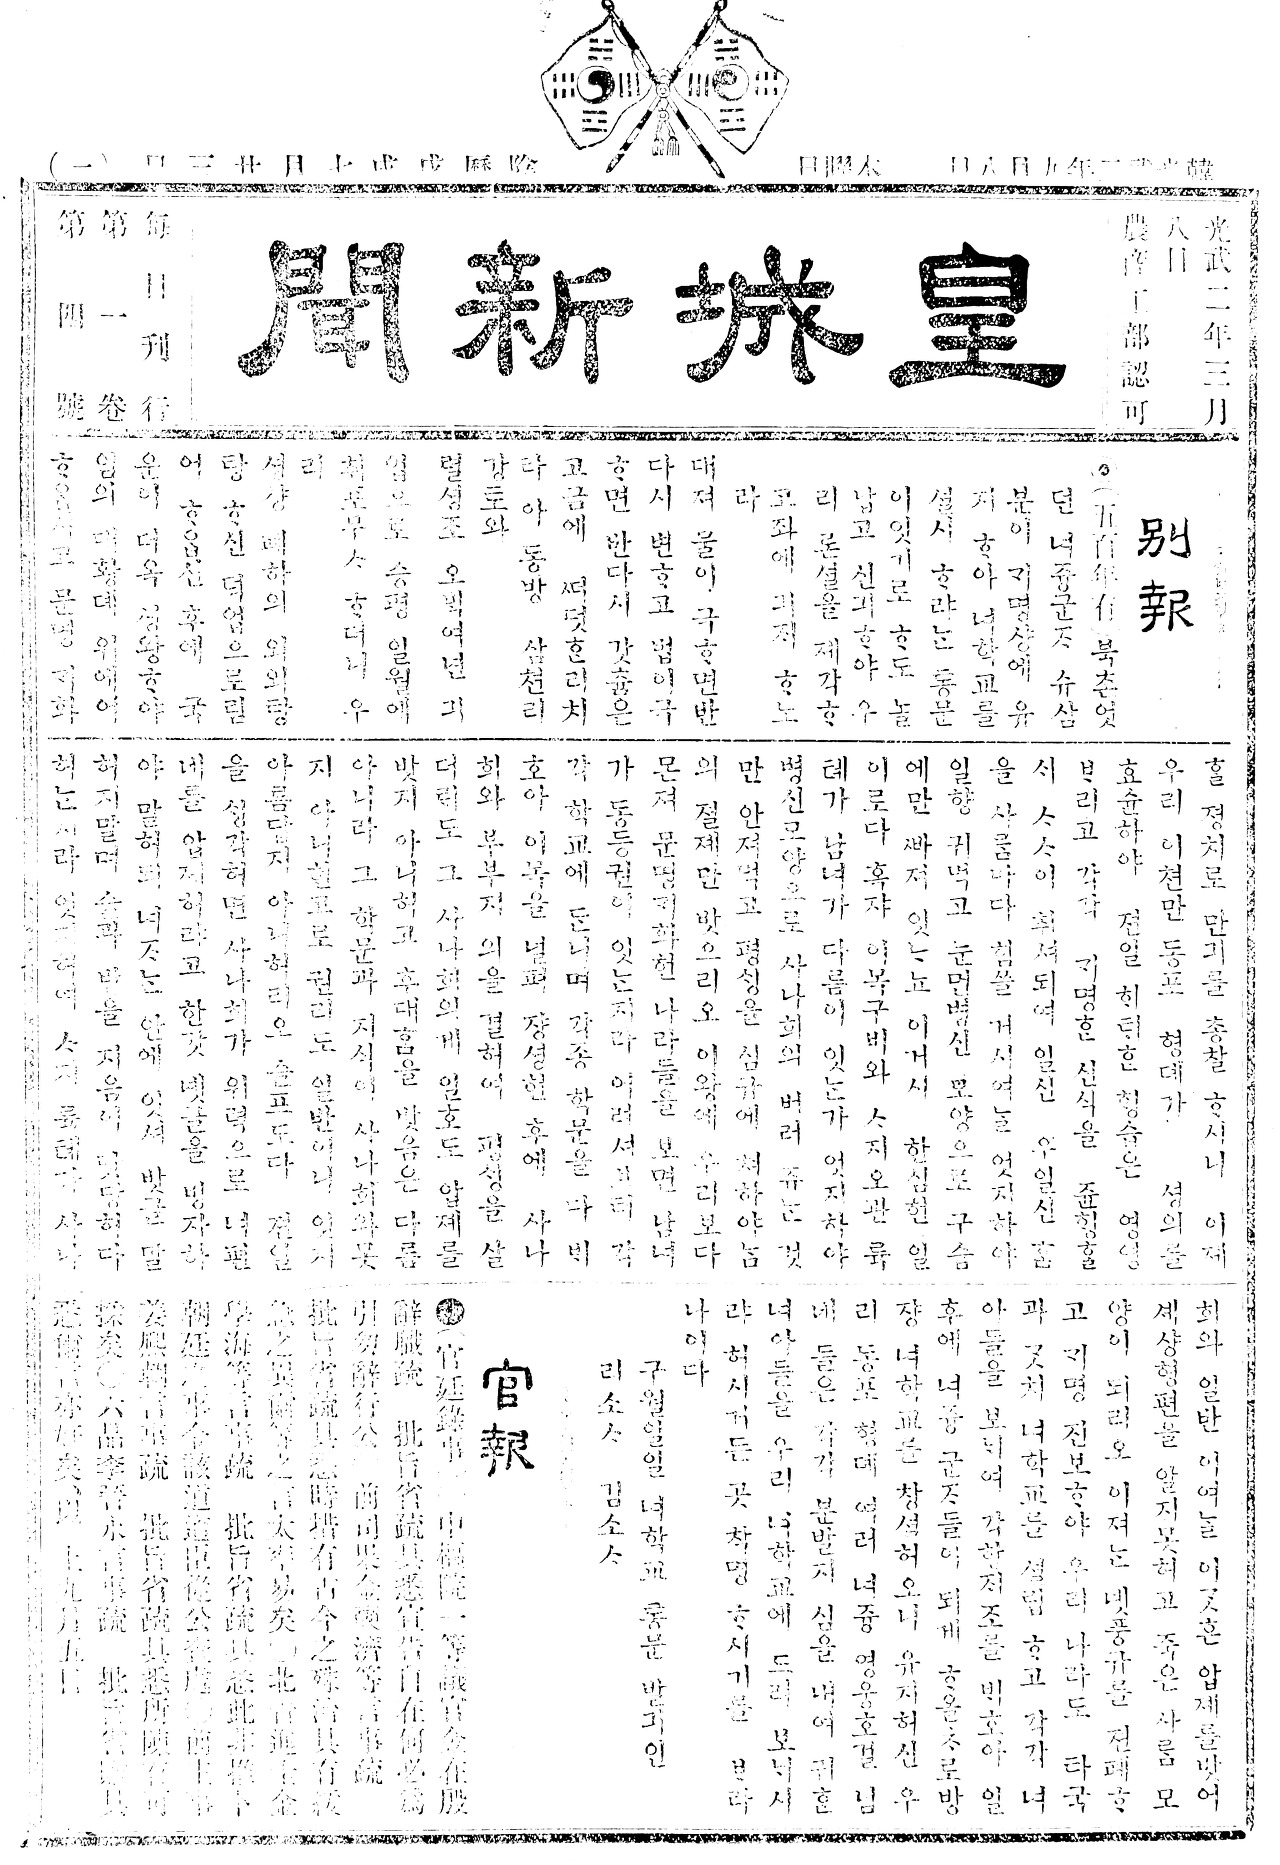 韓光武二年九月八日 木曜日 陰曆戊戌七月廿三日 (一)
光武二年三月
八日
農商工部認可
皇城新聞
每日刊行
第一卷
第四號
別報
(五百年有) 북촌엇
던 녀즁군ᄌᆞ 슈삼
분이 ᄀᆡ명샹에 유
지 ᄒᆞ야 녀학교를
셜시 ᄒᆞ랴ᄂᆞᆫ 통문
이잇기로 ᄒᆞ도 놀
납고 신긔ᄒᆞ야 우
리 론셜을 졔각ᄒᆞ
고좌에 긔ᄌᆡ ᄒᆞ노
라
대져 물이 극ᄒᆞ면반
다시 변ᄒᆞ고 법이극
ᄒᆞ면 반다시 갓츔은
고금에 ᄯᅥᆺᄯᅥᆺᄒᆞᆫ리치
라 아 동방 삼쳔리
강토와
렬셩조 오ᄇᆡᆨ여년 긔
업으로 승평 일월에
취포무ᄉᆞ ᄒᆞ더니 우
리
셩샹 폐하의 외외탕
탕 ᄒᆞ신 덕업으로림
어 ᄒᆞ옵신 후에 국
운이 더옥 셩왕ᄒᆞ야
임의 대황뎨 위에어
ᄒᆞ옵시고 문명 ᄀᆡ화
ᄒᆞᆯ 졍치로 만긔를 총찰 ᄒᆞ시니 이제
우리 이쳔만 동포 형뎨가 셩의를
효슌하야 젼일 ᄒᆡᄐᆡᄒᆞᆫ ᄒᆡᆼ습은 영영
ᄇᆞ리고 각각 ᄀᆡ명ᄒᆞᆫ 신식을 쥰ᄒᆡᆼᄒᆞᆯ
ᄉᆡ ᄉᆞᄉᆞ이 취셔되여 일신 우일신 ᄒᆞᆷ
을 사ᄅᆞᆷ마다 힘쓸 거시여ᄂᆞᆯ 엇지하야
일향 귀먹고 눈먼병신 모양으로 구습
에만 ᄲᅡ져 잇ᄂᆞ뇨 이거시 한심헌 일
이로다 혹쟈 이목구비와 ᄉᆞ지오관 륙
톄가 남녀가 다름이 잇ᄂᆞᆫ가 엇지하야
병신모양으로 사나희의 버러 쥬ᄂᆞᆫ 것
만 안져먹고 평ᄉᆡᆼ을 심규에 쳐하야ᄂᆞᆷ
의 졀졔만 밧으리오 이왕에 우리보다
몬져 문명ᄀᆡ화헌 나라들을 보면 남녀
가 동등권이 잇ᄂᆞᆫ지라 어려셔브터 각
각 학교에 ᄃᆞᆫ니며 각죵 학문을 다 ᄇᆡ
호아 이목을 널펴 쟝셩헌 후에 사나
희와 부부지 의을 결혀여 평ᄉᆡᆼ을 살
더ᄅᆡ도 그 사나희의게 일호도 압졔를
밧지 아니허고 후대홈을 밧음은 다름
아니라 그 학문과 지식이 사나희와못
지 아니헌고로 권리도 일반이니 엇지
아름답지 아니허리오 슬푸도다 젼일
을 ᄉᆡᆼ각허면 사나희가 위력으로 녀편
네를 압졔허랴고 한갓 녯글을 빙자하
야 말허되 녀ᄌᆞᄂᆞᆫ 안에 잇셔 밧글 말
허지말며 술과 밥을 지음이 맛당허다
허ᄂᆞᆫ지라 엇지허여 ᄉᆞ지 륙톄가 사나
희와 일반 이여ᄂᆞᆯ 이ᄀᆞᆺᄒᆞᆫ 압졔를밧어
셰샹형편을 알지못허고 죽은 사ᄅᆞᆷ 모
양이 되리오 이져ᄂᆞᆫ 녯풍규를 젼폐ᄒᆞ
고 ᄀᆡ명 진보ᄒᆞ야 우리 나라도 타국
과 ᄀᆞᆺ치 녀학교를 셜립 ᄒᆞ고 각각 녀
아들을 보ᄂᆡ여 각항ᄌᆡ조를 ᄇᆡ호아 일
후에 녀즁 군ᄌᆞ들이 되게 ᄒᆞ올ᄎᆞ로방
쟝 녀학교를 창셜허오니 유지허신 우
리 동포 형뎨 여러 녀즁 영웅호걸 님
네 들은 각각 분발지 심을 내여 귀ᄒᆞᆫ
녀아들을 우리 녀학교에 드려 보ᄂᆡ시
랴 허시거든 곳 착명 ᄒᆞ시기를 ᄇᆞ라
나이다
구월일일 녀학교 통문 발긔인
리소ᄉᆞ 김소ᄉᆞ
官報
(官廷錄事) 中樞院一等議官金在殷
辭職疏 批旨省疏具悉官啣自在何必爲
引 勿辭行公 前司果金 濟等言事疏
批旨省疏具悉時措有古今之殊治具有
急之異爾等之言太率易矣〇北靑進士金
學海等言事疏 批旨省疏具悉此非 下
朝廷之事令該道道臣從公 〇前主事
姜熙朝言事疏 批旨省疏具悉所陳 可
採矣〇六品李 永言事疏 批旨省疏具
悉爾言亦好矣以上九月五日